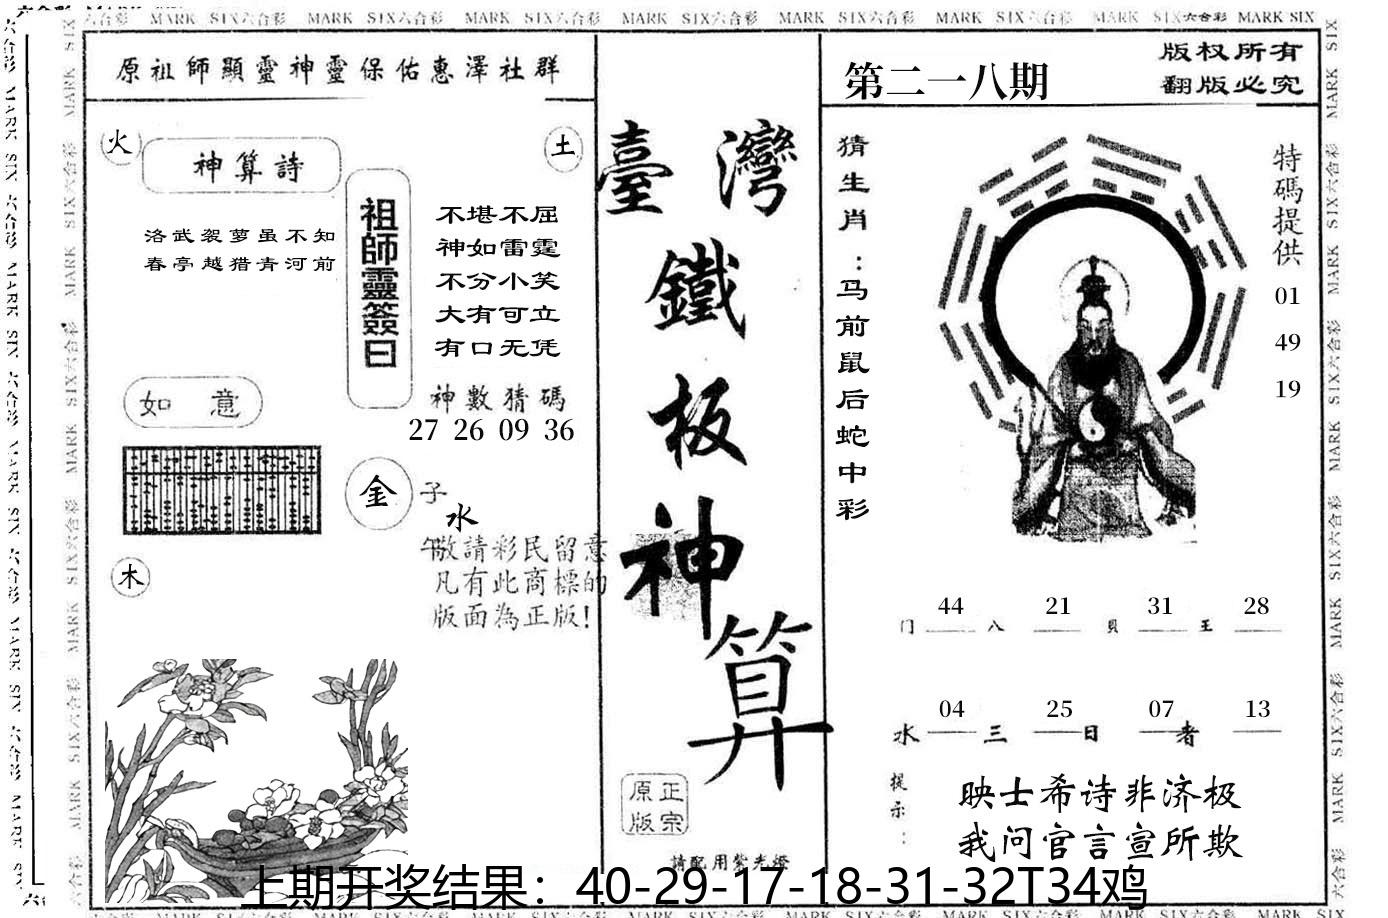 MARK SIX六合彩 MARK SIX六合彩 MARK SIX六合彩 MARK SIX六合彩 MARK SIX六合彩 MARK SIX六合彩 MARK SIX六合彩 MARK SIX
原祖師顯靈神靈保佑惠澤社群
火
土
神算詩
洛武袈萝虽不知
春亭越猎青河前
祖師靈簽曰
不堪不屈
神如雷霆
不分小笑
大有可立
有口无凭
神數猜碼
27 26 09 36
如意
金
子
水
午
木
敬請彩民留意
凡有此商標的
版面為正版!
臺灣
鐵
板
神
算
正宗
原版
請配用紫光燈
第二一八期
版权所有
翻版必究
猜生肖:马前鼠后蛇中彩
特碼提供
01
49
19
44 21 31 28
门 八 貝 王
04 25 07 13
水 三 日 者
提示:
映士希诗非济极
我问官言宣所欺
上期开奖结果：40-29-17-18-31-32T34鸡